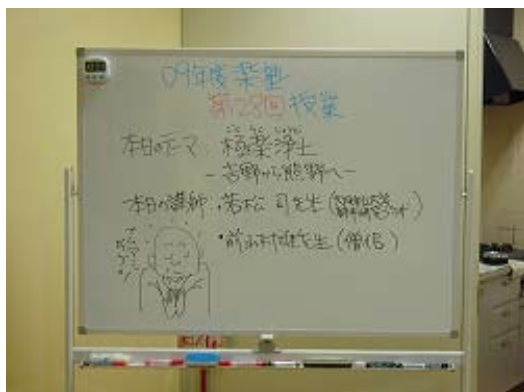 09年度楽塾
第28回授業
本日のテーマ 極楽浄土
-吉野から熊野へ-
本日の講師・若松 司先生(
・前 先生(僧侶)